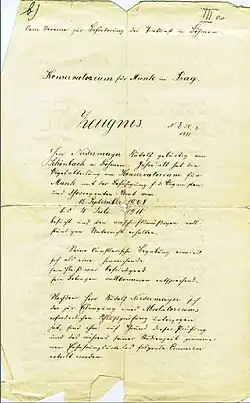 III a
Dem Vereine zur Beförderung der Tonkunst in Böhmen
Konservatorium für Musik in Prag.
Zeugnis.
Herr Niedermayer Rudolf gebürtig aus
Schönbach in Böhmen, Jahre alt hat die
Orgelabteilung am Konservatorium für
Musik mit der Befähigung
und Chorregenten vom
15. September 1908
bis 4. Juli 1911
besucht und den vorschriftsmäßigen voll-
ständigen Unterricht erhalten.
Seine künstlerische Begabung erwies
sich als eine
sein Fleiß war befriedigend
sein Betragen vollkommen entsprechend.
Nachdem Herr Rudolf Niedermayer sich
der zur Erlangung eines Absolutoriums
erforderlichen Schlußprüfung unterzogen
hat, sind ihm auf Grund dieser Prüfung
und des während seiner Studienzeit
folgende Zensuren
erteilt worden